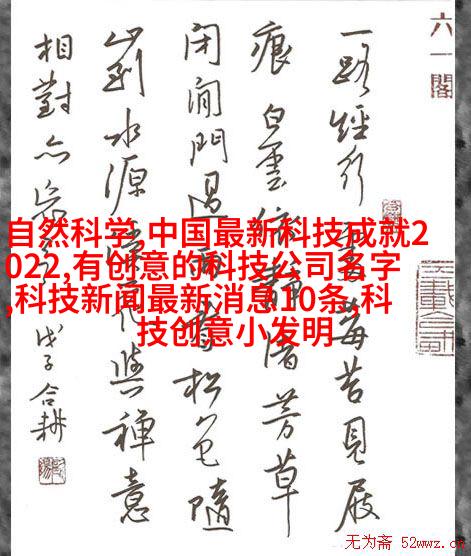 六一閣
一路經行莓苔見屐
痕白雲依靜渚芳草
閉閒門過雨看松色隨
山到水源花與禪意
相對亦忘
戊子合耕
自然科学,中国最新科技成就2
022,有创意的科技公司名字
,科技新闻最新消息10条,科
技创意小发明
无为斋 52wwz.cc